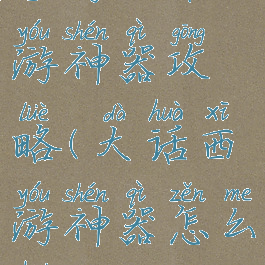 yóu shén qì gōng
游神器攻
lüè dà huà xī
略(大话西
yóu shén qì zěn me
游神器怎么